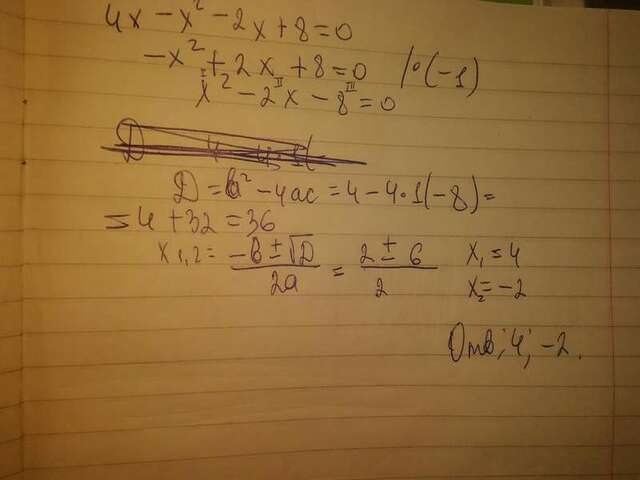 4x - x² - 2x + 8 = 0
-x² + 2x + 8 = 0 /·(-1)
I II III
x² - 2x - 8 = 0
D = b² - 4ac = 4 - 4·1(-8) =
= 4 + 32 = 36
x₁,₂ = (-b ± √D)/2a = (2 ± 6)/2 x₁ = 4
x₂ = -2
Отв: 4; -2.